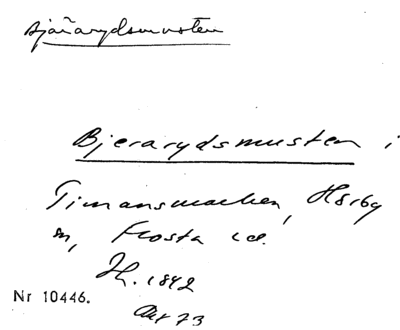 Bjärarydsmusten
Bjerarydsmusten i
Timansmacken, Hörby
sn, Frosta hd.
H. 1842
Nr 10446.
Akt 73